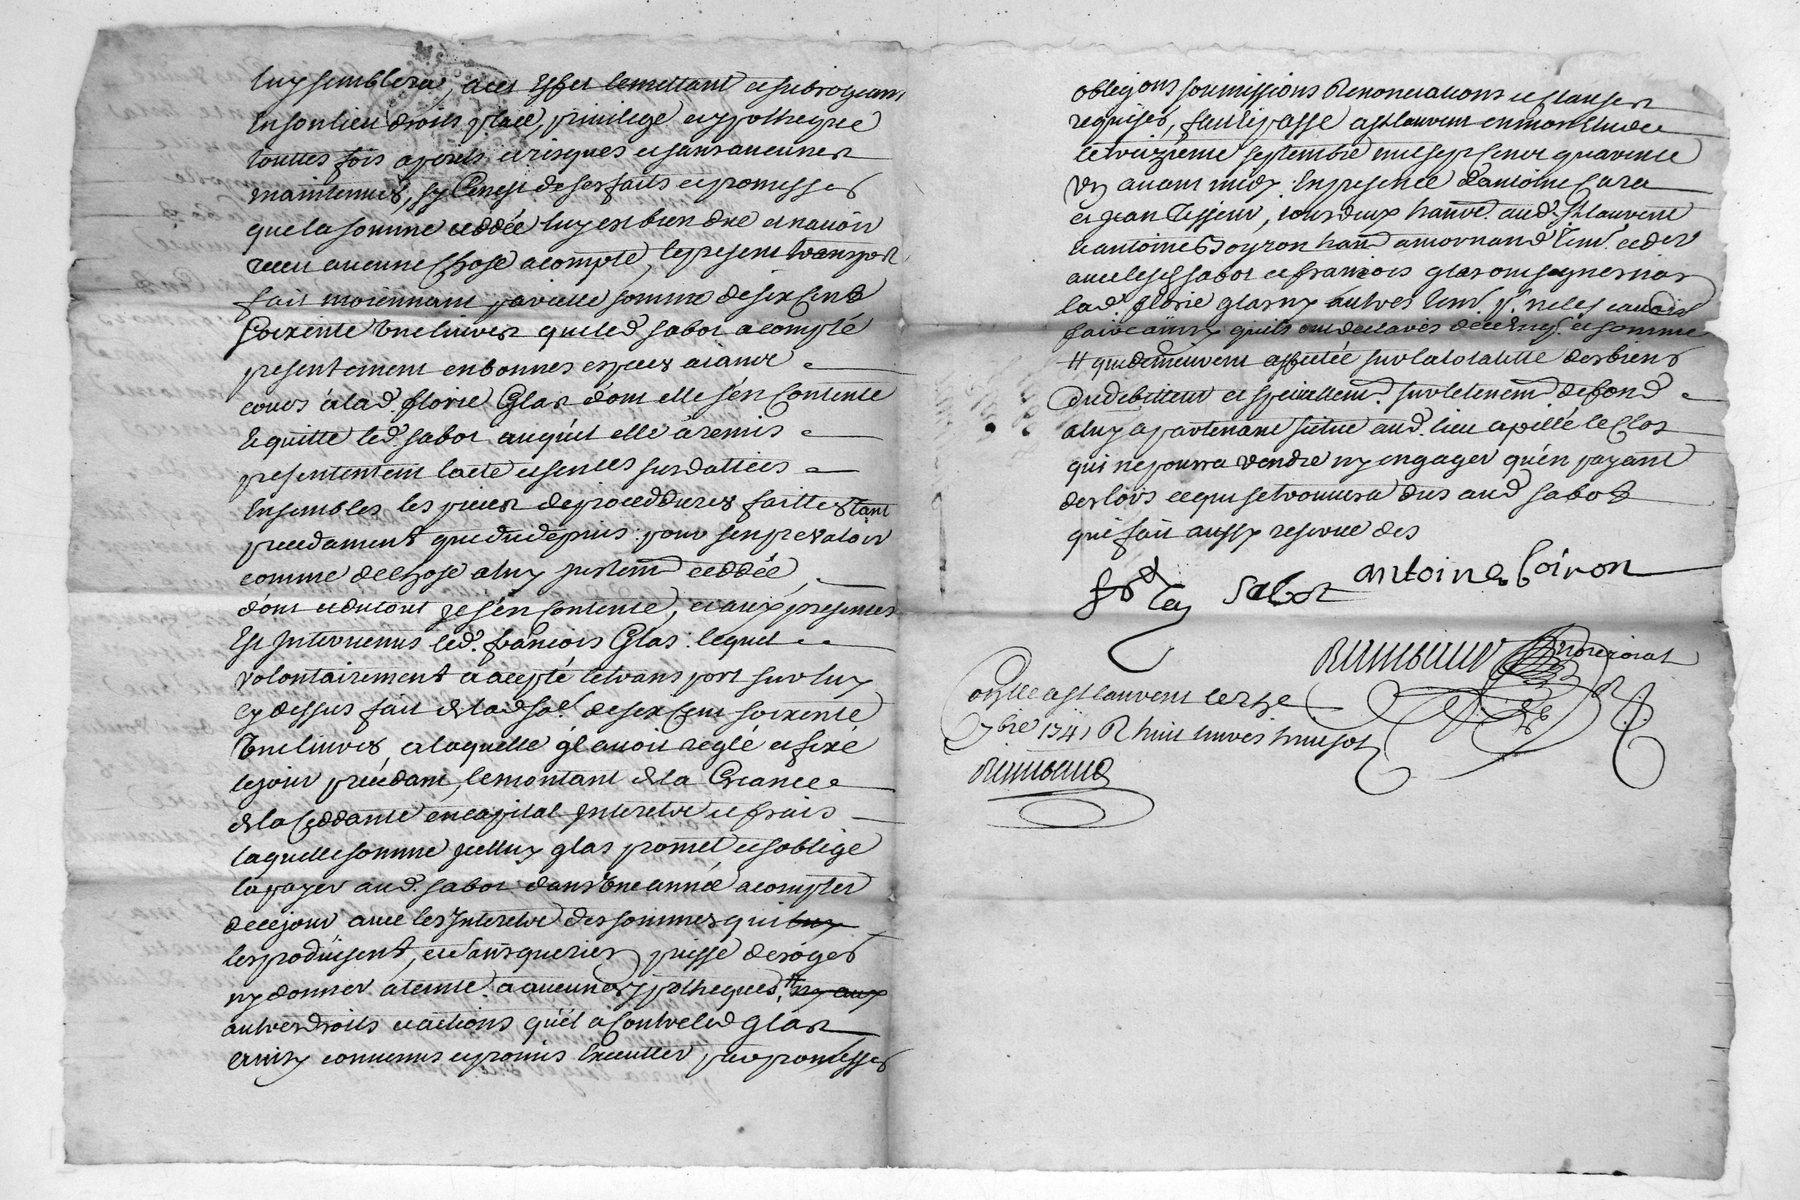 luy semblera, a cet Effet le mettant et subrogeant
En son lieu droits place, privilege et ypotheque
touttes fois a perils et risques et sans aucunes
maintenües, sy Ce n'est de ses faits et promesses
que la somme ceddée luy est bien düe et n'avoir
receu aucune chose acompte, le present transport
fait moiennant pareille somme de six Cent
Soixente Une livres que led. sabot a compté
presentement en bonnes especes aiant
cours a lad. florie Glas dont elle s'en Contente
Et quitte led. sabot auquel elle a remis
presentement lacte et sentences susdattées
Ensembles les pieces de proceddures faittes tant
precedament que du depuis pour s'en prevaloir
comme de chose a luy justemt ceddée,
dont et du tout je s'en Contente, et aux presentes
Est Intervenus led. françois Glas lequel
volontairement a accepté le transport sur luy
cy dessus fait de lad. so.e de six Cent soixente
Une livres a laquelle il avoit reglé et fixé
le jour precedant, le montant de la Creance
de la Ceddante en capital Interetz et frais
laquelle somme jcelluy glas promet et s'oblige
la payer aud. sabot dans Une année a compter
de ce jour avec les Interetz des sommes qui luy
les produisent, et sans que rien puisse deroger
ny donner ateinte a aucunes ypotheques, # ny aux
autres droits et actions qu'il a Contre led glas
Ainsy convenus et promis Executter, par promesses
obligons soumissions Renonciations et clauses
requises, fait et passé a st laurent en mon Etude
le treizième septembre mil sept Cent quarente
Un avant midy En presence d'antoine
et jean Tessieur, tous deux hants aud. st laurent
et antoine Coyron hant a mornand Tem. et der
avec lesd sabot et francois glas ont signé non
lad. florie glas ny autres Tem. p. ne les avoir sceu
faire ainsy quils ont declarés de ce Enq. et sommé
# qui demeurent affectée sur la totalitté des biens
du debitteur et specialemt. sur le tenemt de fond
a luy apartenant sittué aud. lieu apellé le Clos
qui ne pourra vendre ny engager qu'en payant
des lors ce qui se trouvera dus aud sabot
qui fait aussy reserve des
sabot antoine Coiron
Controllé a st laurent le 13e
7bre 1741 R huit livres huit sols